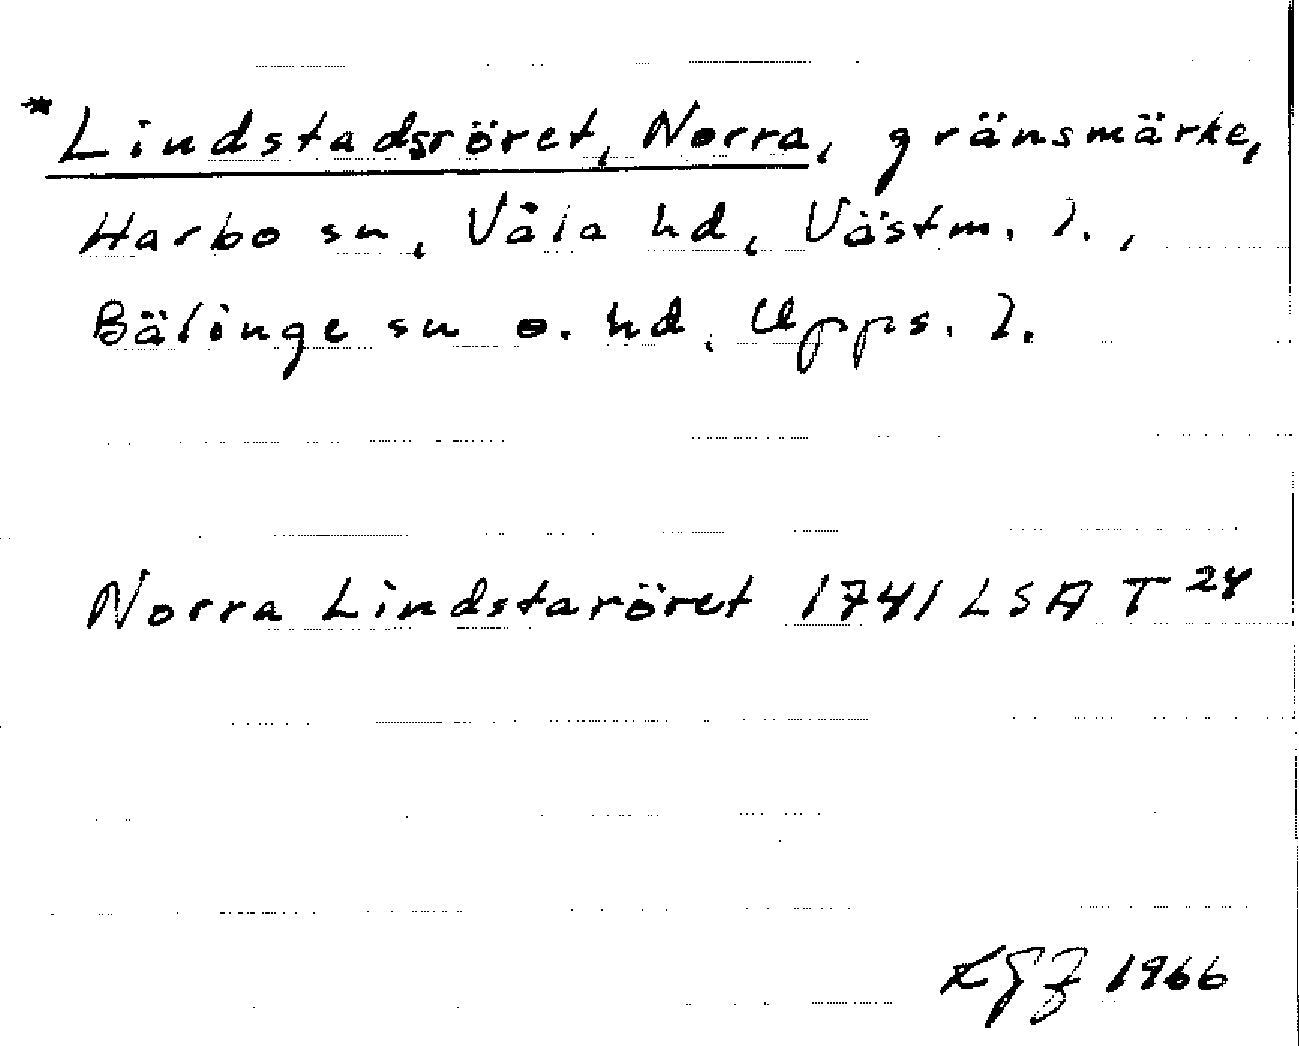 *Lindstadsröret, Norra, gränsmärke,
Harbo sn, Våla hd, Västm. l.,
Bälinge sn o. hd, Upps. l.
Norra Lindstaröret 1741 LSA T 24
1966